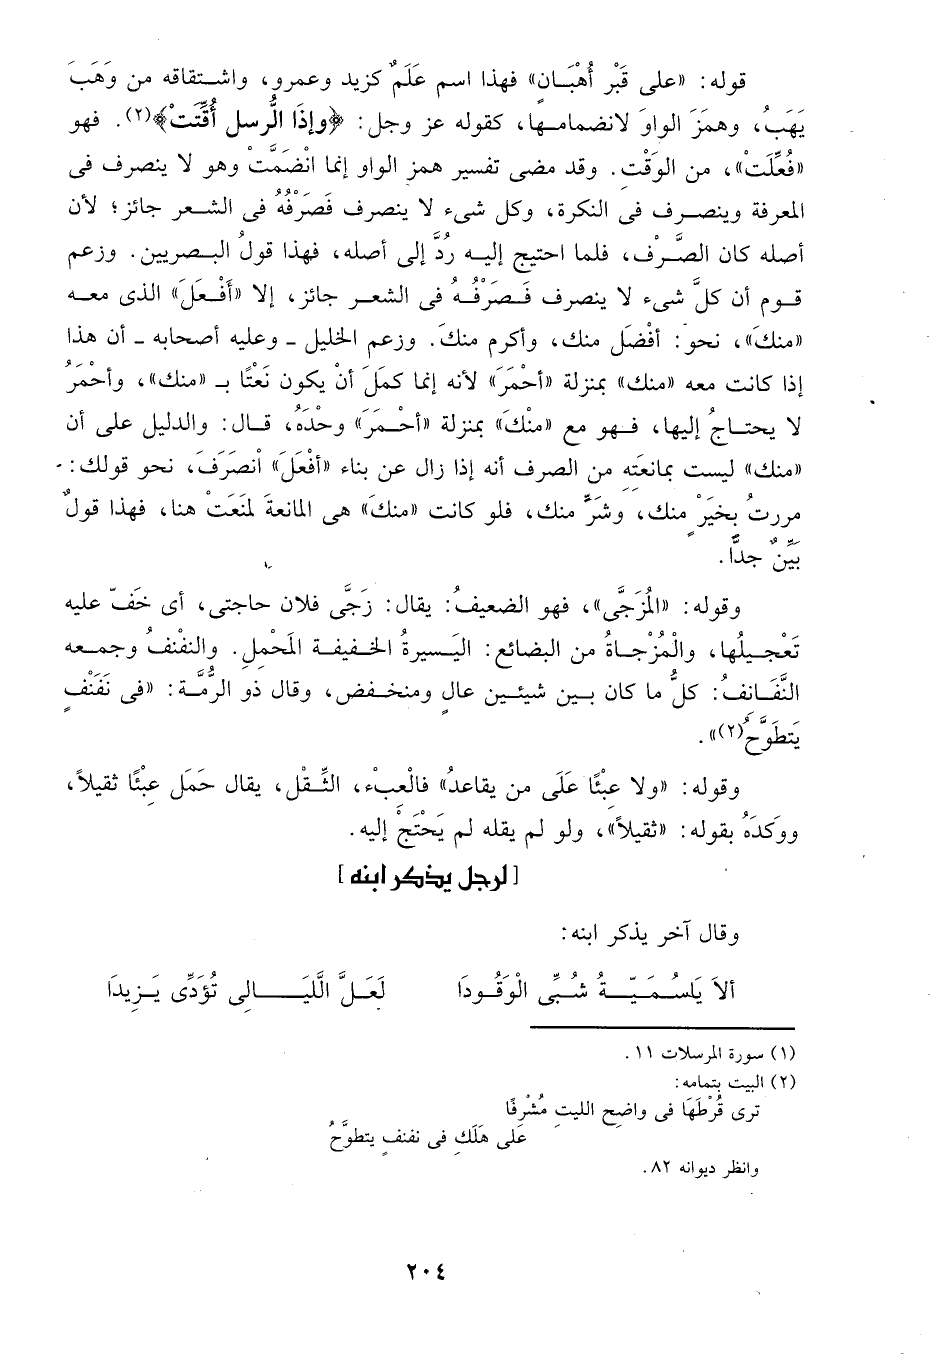 قوله: «على قَبْرِ أُهْبَـانٍ» فهذا اسم عَلَمٌ كزيد وعمرو، واشـتقاقه من وَهَبَ
يَهَبُ، وهمَزَ الواوَ لانضمامـها، كقوله عز وجل: ﴿وإذَا الُّرسل أُقِّتَتْ﴾(٢). فهو
«فُعِّلَتْ»، من الوَقْت. وقد مضى تفسير همز الواو إنما انْضَمَّتْ وهو لا ينصرف فى
المعرفة وينصـرف فى النكرة، وكل شىء لا ينصرف فَصَرْفُهُ فى الشـعر جائز؛ لأن
أصله كان الصَّـرْف، فلما احتيج إليـه رُدَّ إلى أصله، فهذا قولُ البـصريين. وزعم
قـوم أن كلَّ شىء لا ينصرف فَـصَرْفُـهُ فى الشعـر جائز، إلا «أَفْـعَلَ» الذى معـه
«منكَ»، نحوَ: أفْضَل منك، وأكرم منكَ. وزعم الخليل ـ وعليه أصحابه ـ أن هذا
إذا كانت معه «منك» بمنزلة «أحْمَرَ» لأنه إنما كمَلَ أنْ يكون نَعْتًا بـ «منك»، وأحْمَرُ
لا يحتـاجُ إليها، فـهو مع «منْكَ» بمنزلة «أحْـمَرَ» وحْدَهُ، قـال: والدليل على أن
«منك» ليست بمانعَتِهِ من الصرف أنه إذا زال عن بناء «أفْعَلَ» أنصَرَفَ، نحو قولك:
مررتُ بِخَيْرٍ منك، وشَرٍّ منك، فلو كانت «منكَ» هى المانعةَ لمنَعَتْ هنا، فهذا قولٌ
بَيِّنٌ جدًّا.
وقوله: «المُزَجَّى»، فهو الضعيفُ: يقال: زَجَّى فلان حاجتى، أى خَفّ عليه
تَعْجـيلُها، والْمُزْجـاةُ من البضائع: اليَـسيرةُ الخـفيفـة المَحْملِ. والنفْنفُ وجـمعـه
النَّفَـانفُ: كلُّ ما كان بـين شيئـين عالٍ ومنخـفض، وقال ذو الرُّمَّـة: «فى نَفَنَفٍ
يَتطَوَّحُ(٢)».
وقوله: «ولا عبْئًا عَلَى من يقاعدُ» فالْعِبْء، الثِّـقْل، يقال حَمَل عِبْئًا ثقيلاً،
ووكدَهُ بقوله: «ثقيلاً»، ولو لم يقله لم يَحْتَجْ إليه.
[لرجل يذكر ابنه]
وقال آخر يذكر ابنه:
ألاَ يَاسُـمَيَّـةُ شُـبِّى الْوَقُـودَا لَعَـلَّ الَّليَــــالِى تُؤَدِّى يَـزِيدَا
(١) سورة المرسلات ١١.
(٢) البيت بتمامه:
ترى قُرْطَهَا فى واضحِ الليتِ مُشْرِفًا
على هَلَكٍ فى نفنفٍ يتطوَّحُ
وانظر ديوانه ٨٢.
٢٠٤